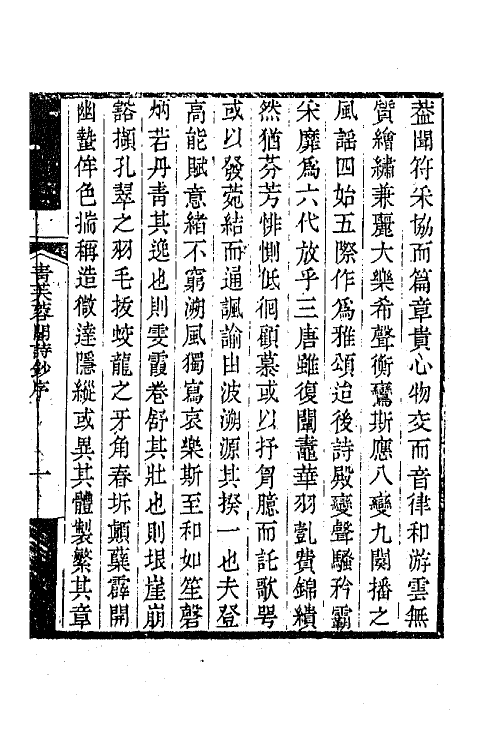 葢聞符采協而篇章貴心物交而音律和游雲無
質繪繡兼麗大樂希聲衡鸞斯應八變九闋播之
風謡四始五際作爲雅頌迨後詩殿變聲騷矜霸
采靡爲六代放乎三唐雖復闈鼃華羽氎費錦繢
然猶芬芳悱惻低徊顧慕或以抒胷臆而託歌咢
或以發菀結而通諷諭由波溯源其揆一也夫登
高能賦意緒不窮溯風獨寫哀樂斯至和如笙磬
炳若丹青其逸也則雯霞卷舒其壯也則垠崖崩
豁擷孔翠之羽毛拔蛟龍之牙角春坼顛蘖霹開
幽蟄侔色揣稱造微達隱縱或異其體製繁其章
青芙蓉閣詩鈔序
一